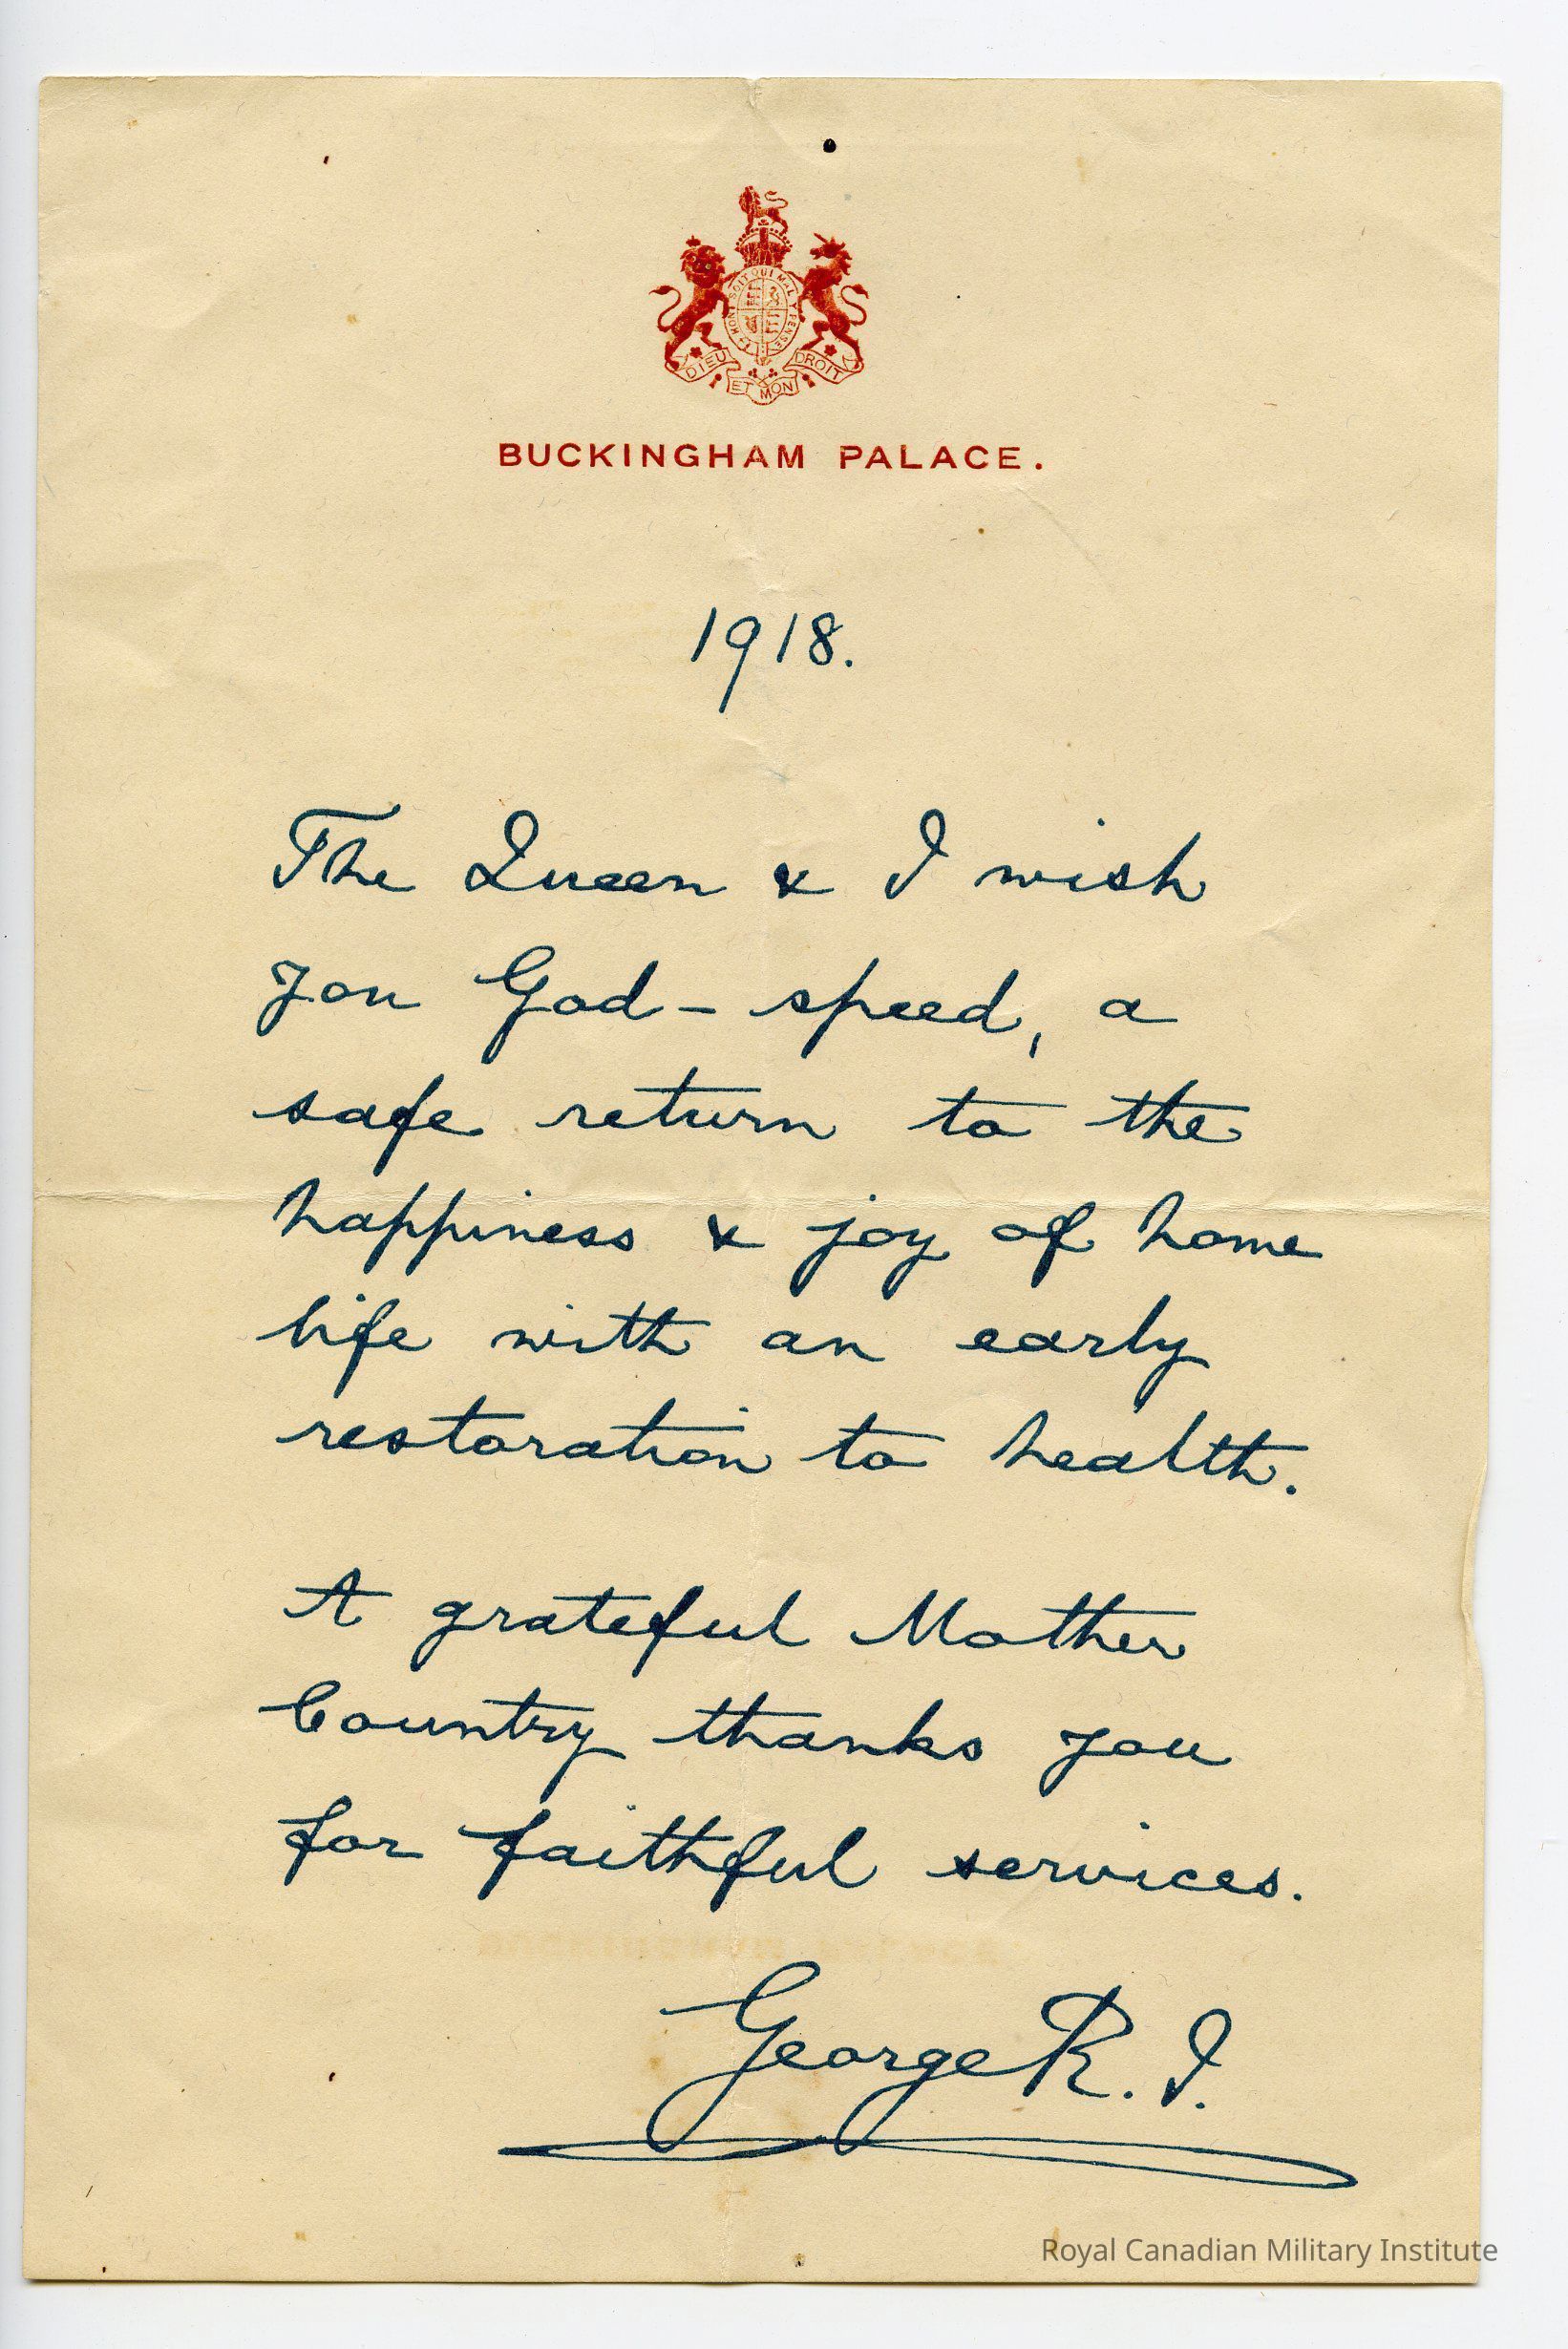 HONI SOIT QUI MAL Y PENSE
DIEU ET MON DROIT
BUCKINGHAM PALACE.
1918.
The Queen & I wish
you God-speed, a
safe return to the
happiness & joy of home
life with an early
restoration to health.
A grateful Mother
Country thanks you
for faithful services.
George R. I.
Royal Canadian Military Institute